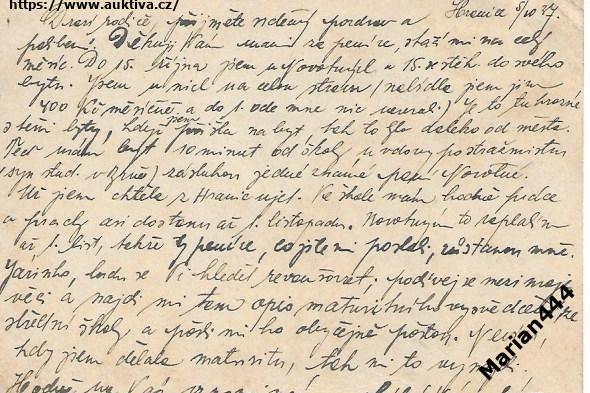 https://www.auktiva.cz/
Hranice 5/10 37.
Drazí rodiče, přijměte srdečný pozdrav a
políbení. Děkuji Vám mami za peníze, stačí mi na celý
měsíc. Do 15. října jsem u Novotných a 15. se stěh. do svého
bytu. Jsem u nich na celou stravu (nabídla jsem jim
400 Kč měsíčně a do 1. ode mne nic nevzal.) Je to tu hrozné
s těmi byty, kdyžjsem přišla na byt, tak to bylo daleko od města.
Teď mám byt 10 minut od školy, u vdovy po strážmistru
(syn stud. v Brně) zásluhou jedné známé paní Novotné.
Už jsem chtěla z Hranic ujet. Ve škole mám hodně práce
a prachy asi dostanu až 1. listopadu. Novotným to zaplatím
až 1. list, takže ty peníze, co jste mi poslali, zůstanou mně.
Jarinko, budu se Ti hledět revanšovat, podívej se mezi moje
věci a najdi mi tam opis maturitního vysvědčení ze
střední školy, a pošli mi ho obyčejně poštou. Ne
kdy jsem dělala maturitu, tak mi to
Marian444